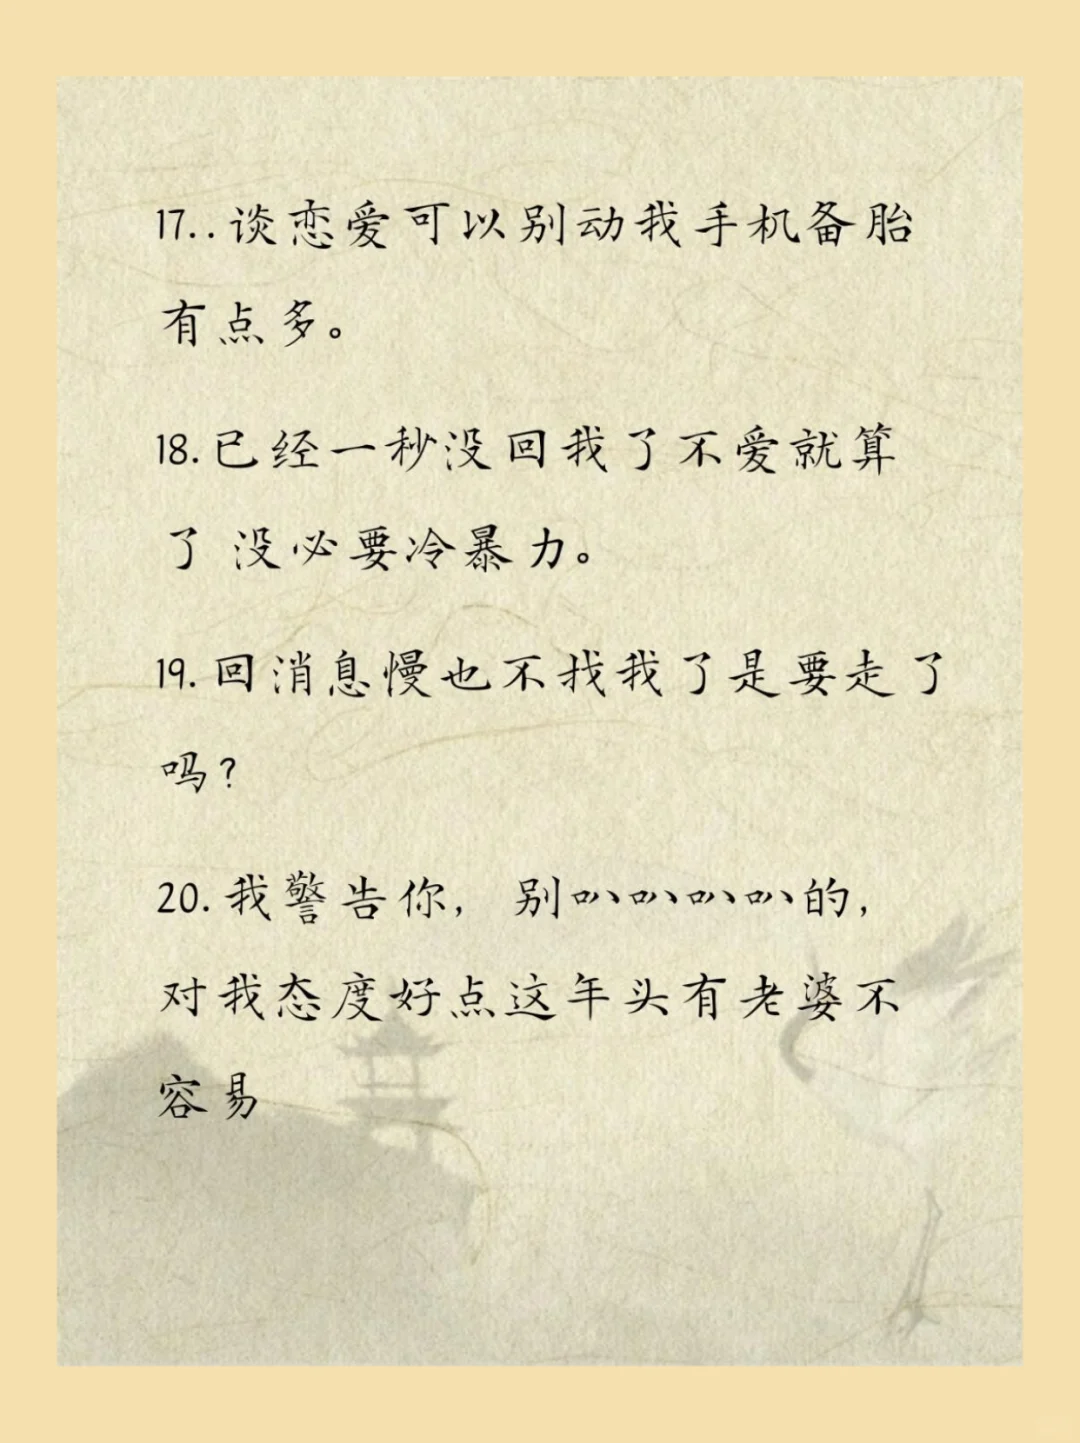 17..谈恋爱可以别动我手机备胎
有点多。
18.已经一秒没回我了不爱就算
了 没必要冷暴力。
19.回消息慢也不找我了是要走了
吗?
20.我警告你, 别叭叭叭叭的,
对我态度好点这年头有老婆不
容易